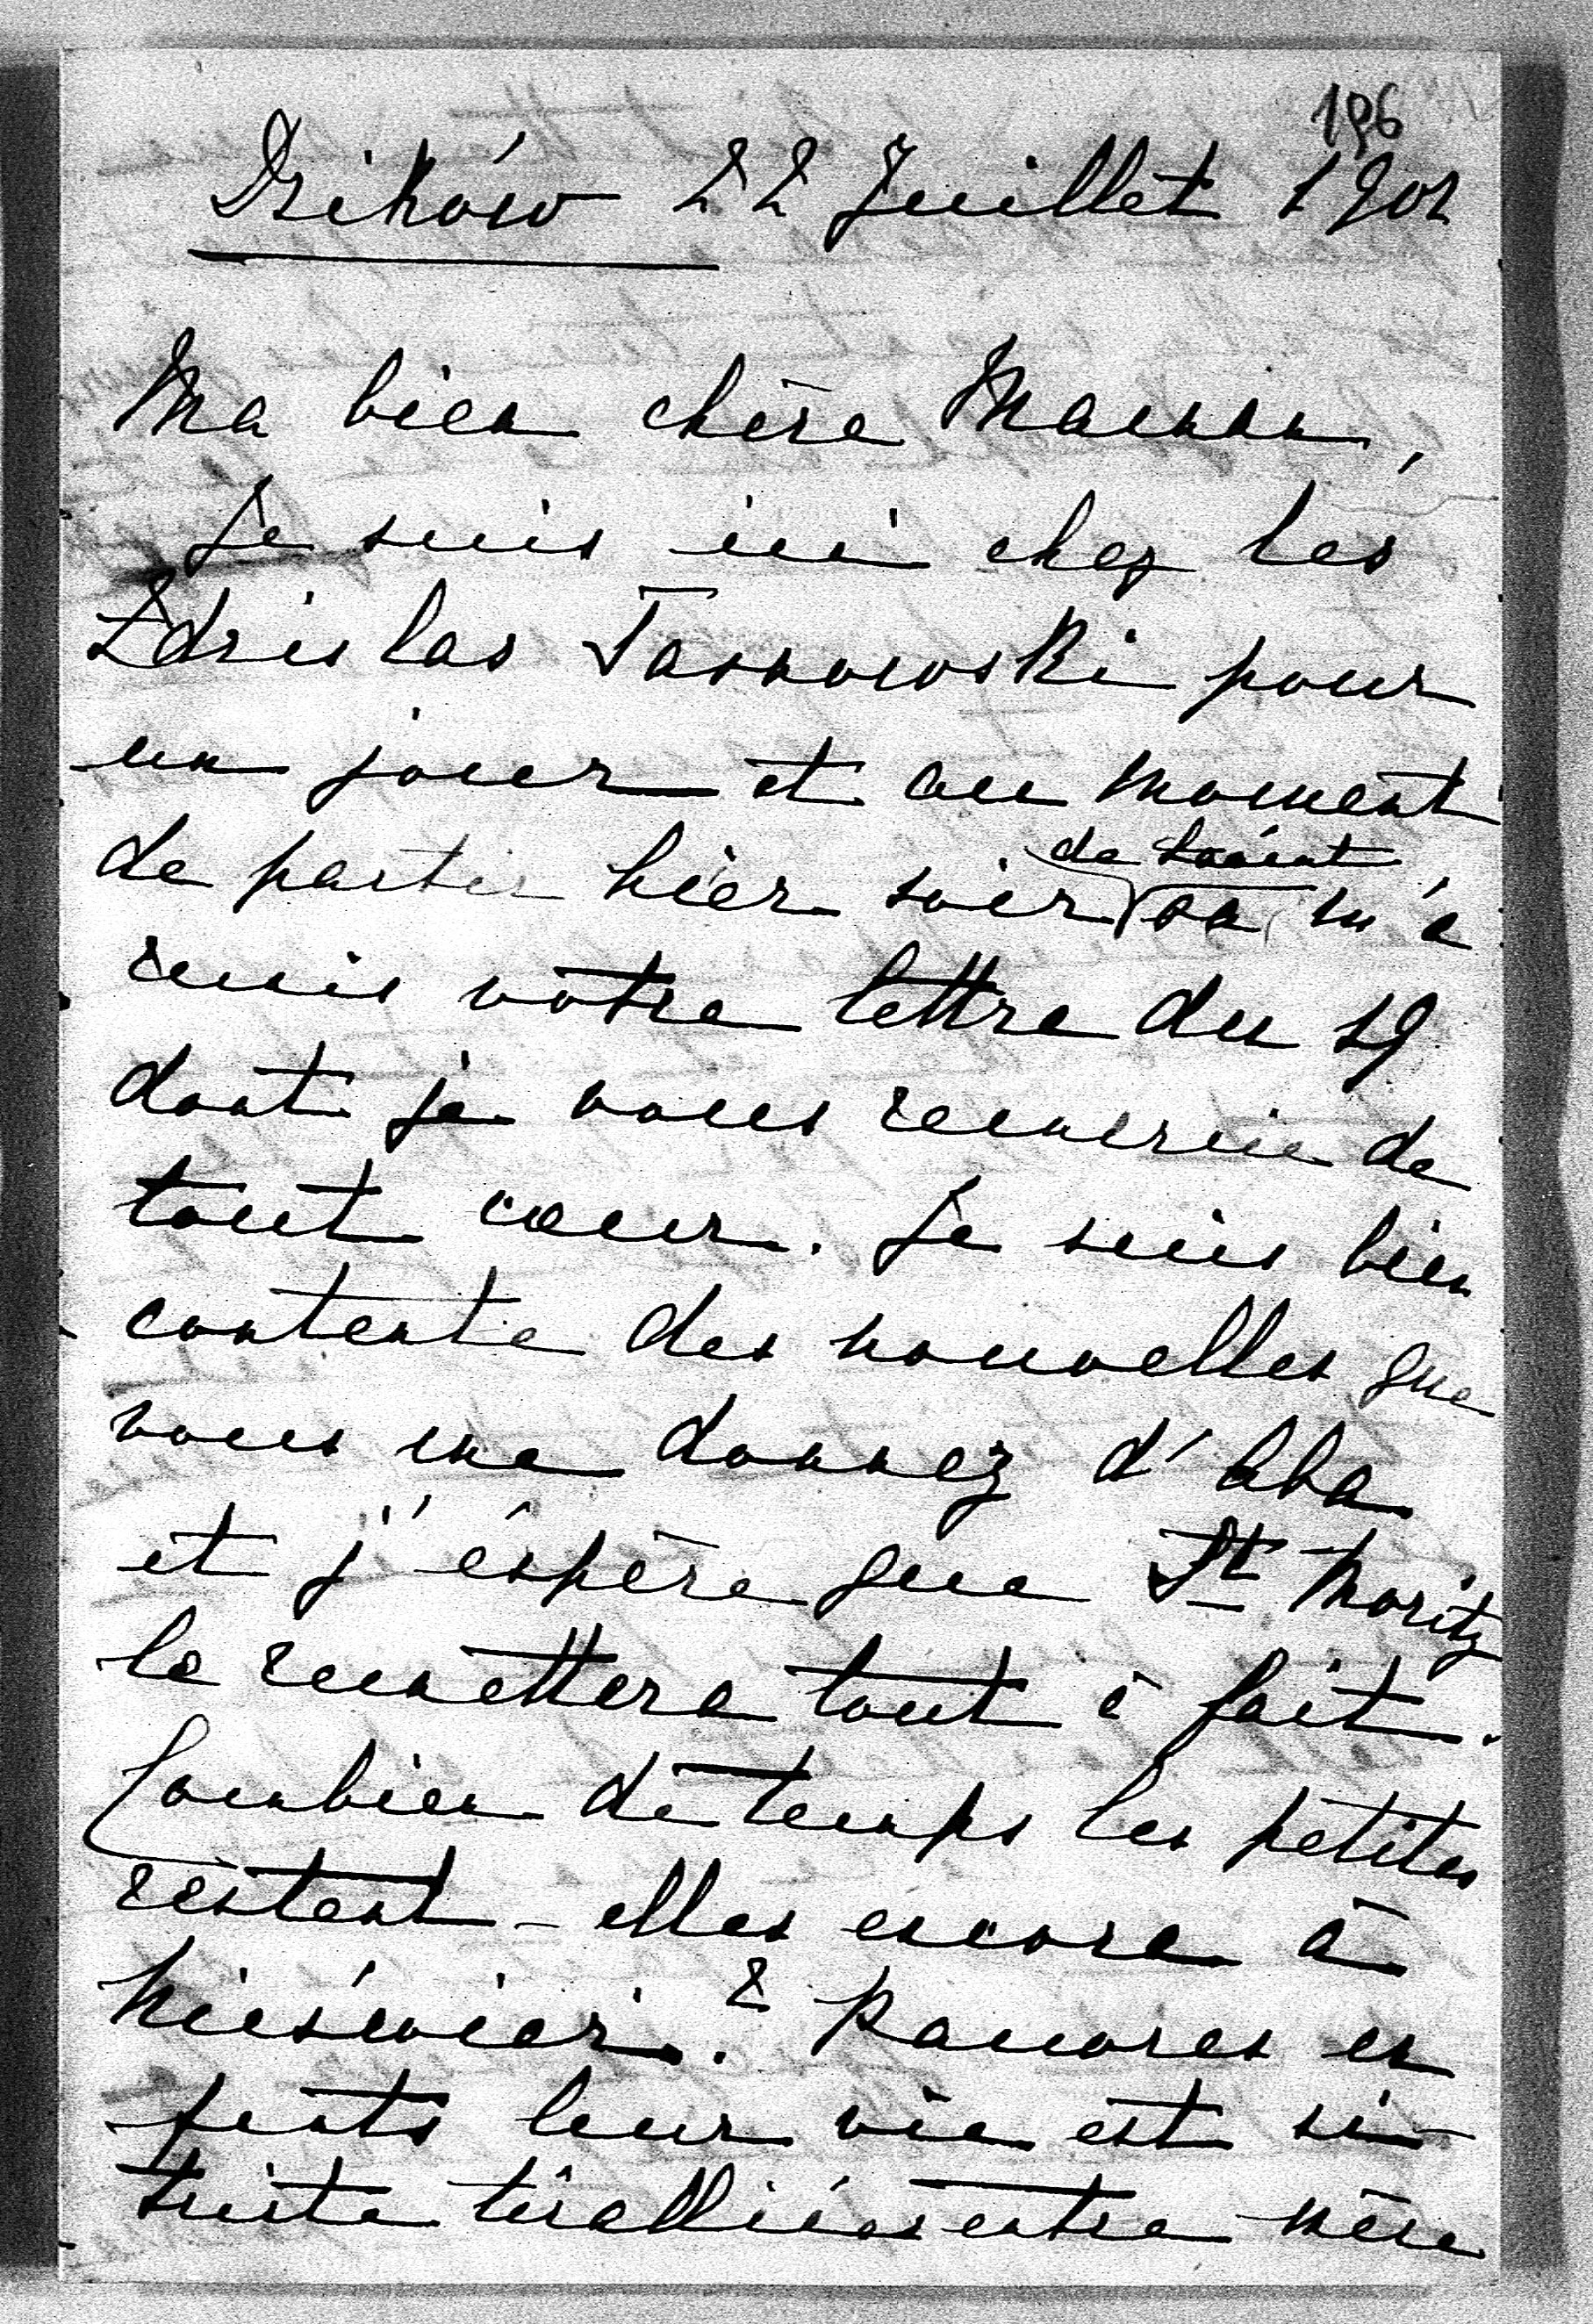 196
Dzików 22 Juillet 1901
Ma bien chère Maman,
Je suis ici chez les
Zdzislas Tarnowski pour
un jour et au moment
de partir hier soir de Łańcut on m'a
remis votre lettre du 19
dont je vous remercie de
tout cœur. Je suis bien
contente des nouvelles que
vous me donnez d'Aba
et j'éspère que St Moritz
le remettera tout à fait.
Combien de temps les petites
restent-elles encore à
Nieświeź? Pauvres en
fants leur vie est si
triste tiralliées entre mère